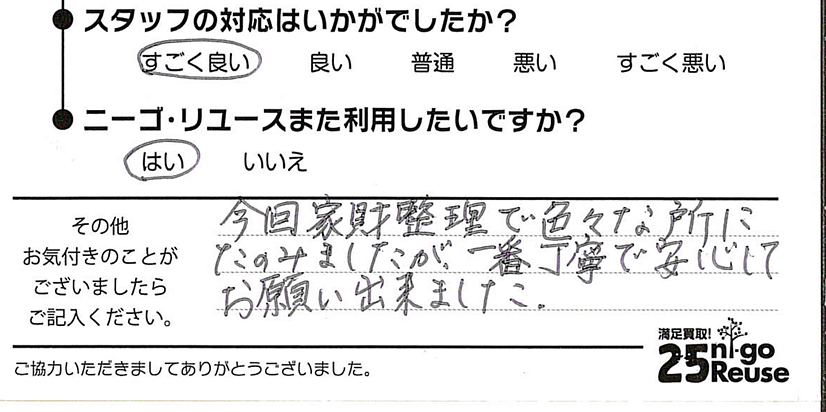 スタッフの対応はいかがでしたか?
すごく良い 良い 普通 悪い すごく悪い
ニーゴ・リユースまた利用したいですか?
はい いいえ
その他
お気付きのことが
ございましたら
ご記入ください。
今回家財整理で色々な所に
たのみましたが、一番丁寧で安心して
お願い出来ました.
満足買取!
25 ni-go
Reuse
ご協力いただきましてありがとうございました。